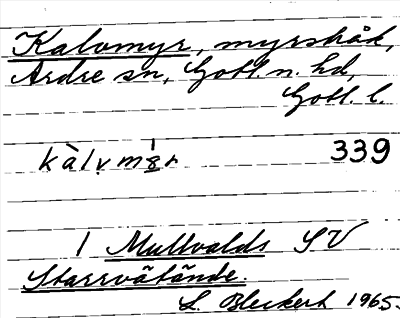 Kalvmyr, myrstråk,
Ardre sn, Gotl. n. hd,
Gotl. l.
339
1 Mullvalds SV
Starrvätände.
L. Bleckert 1965.